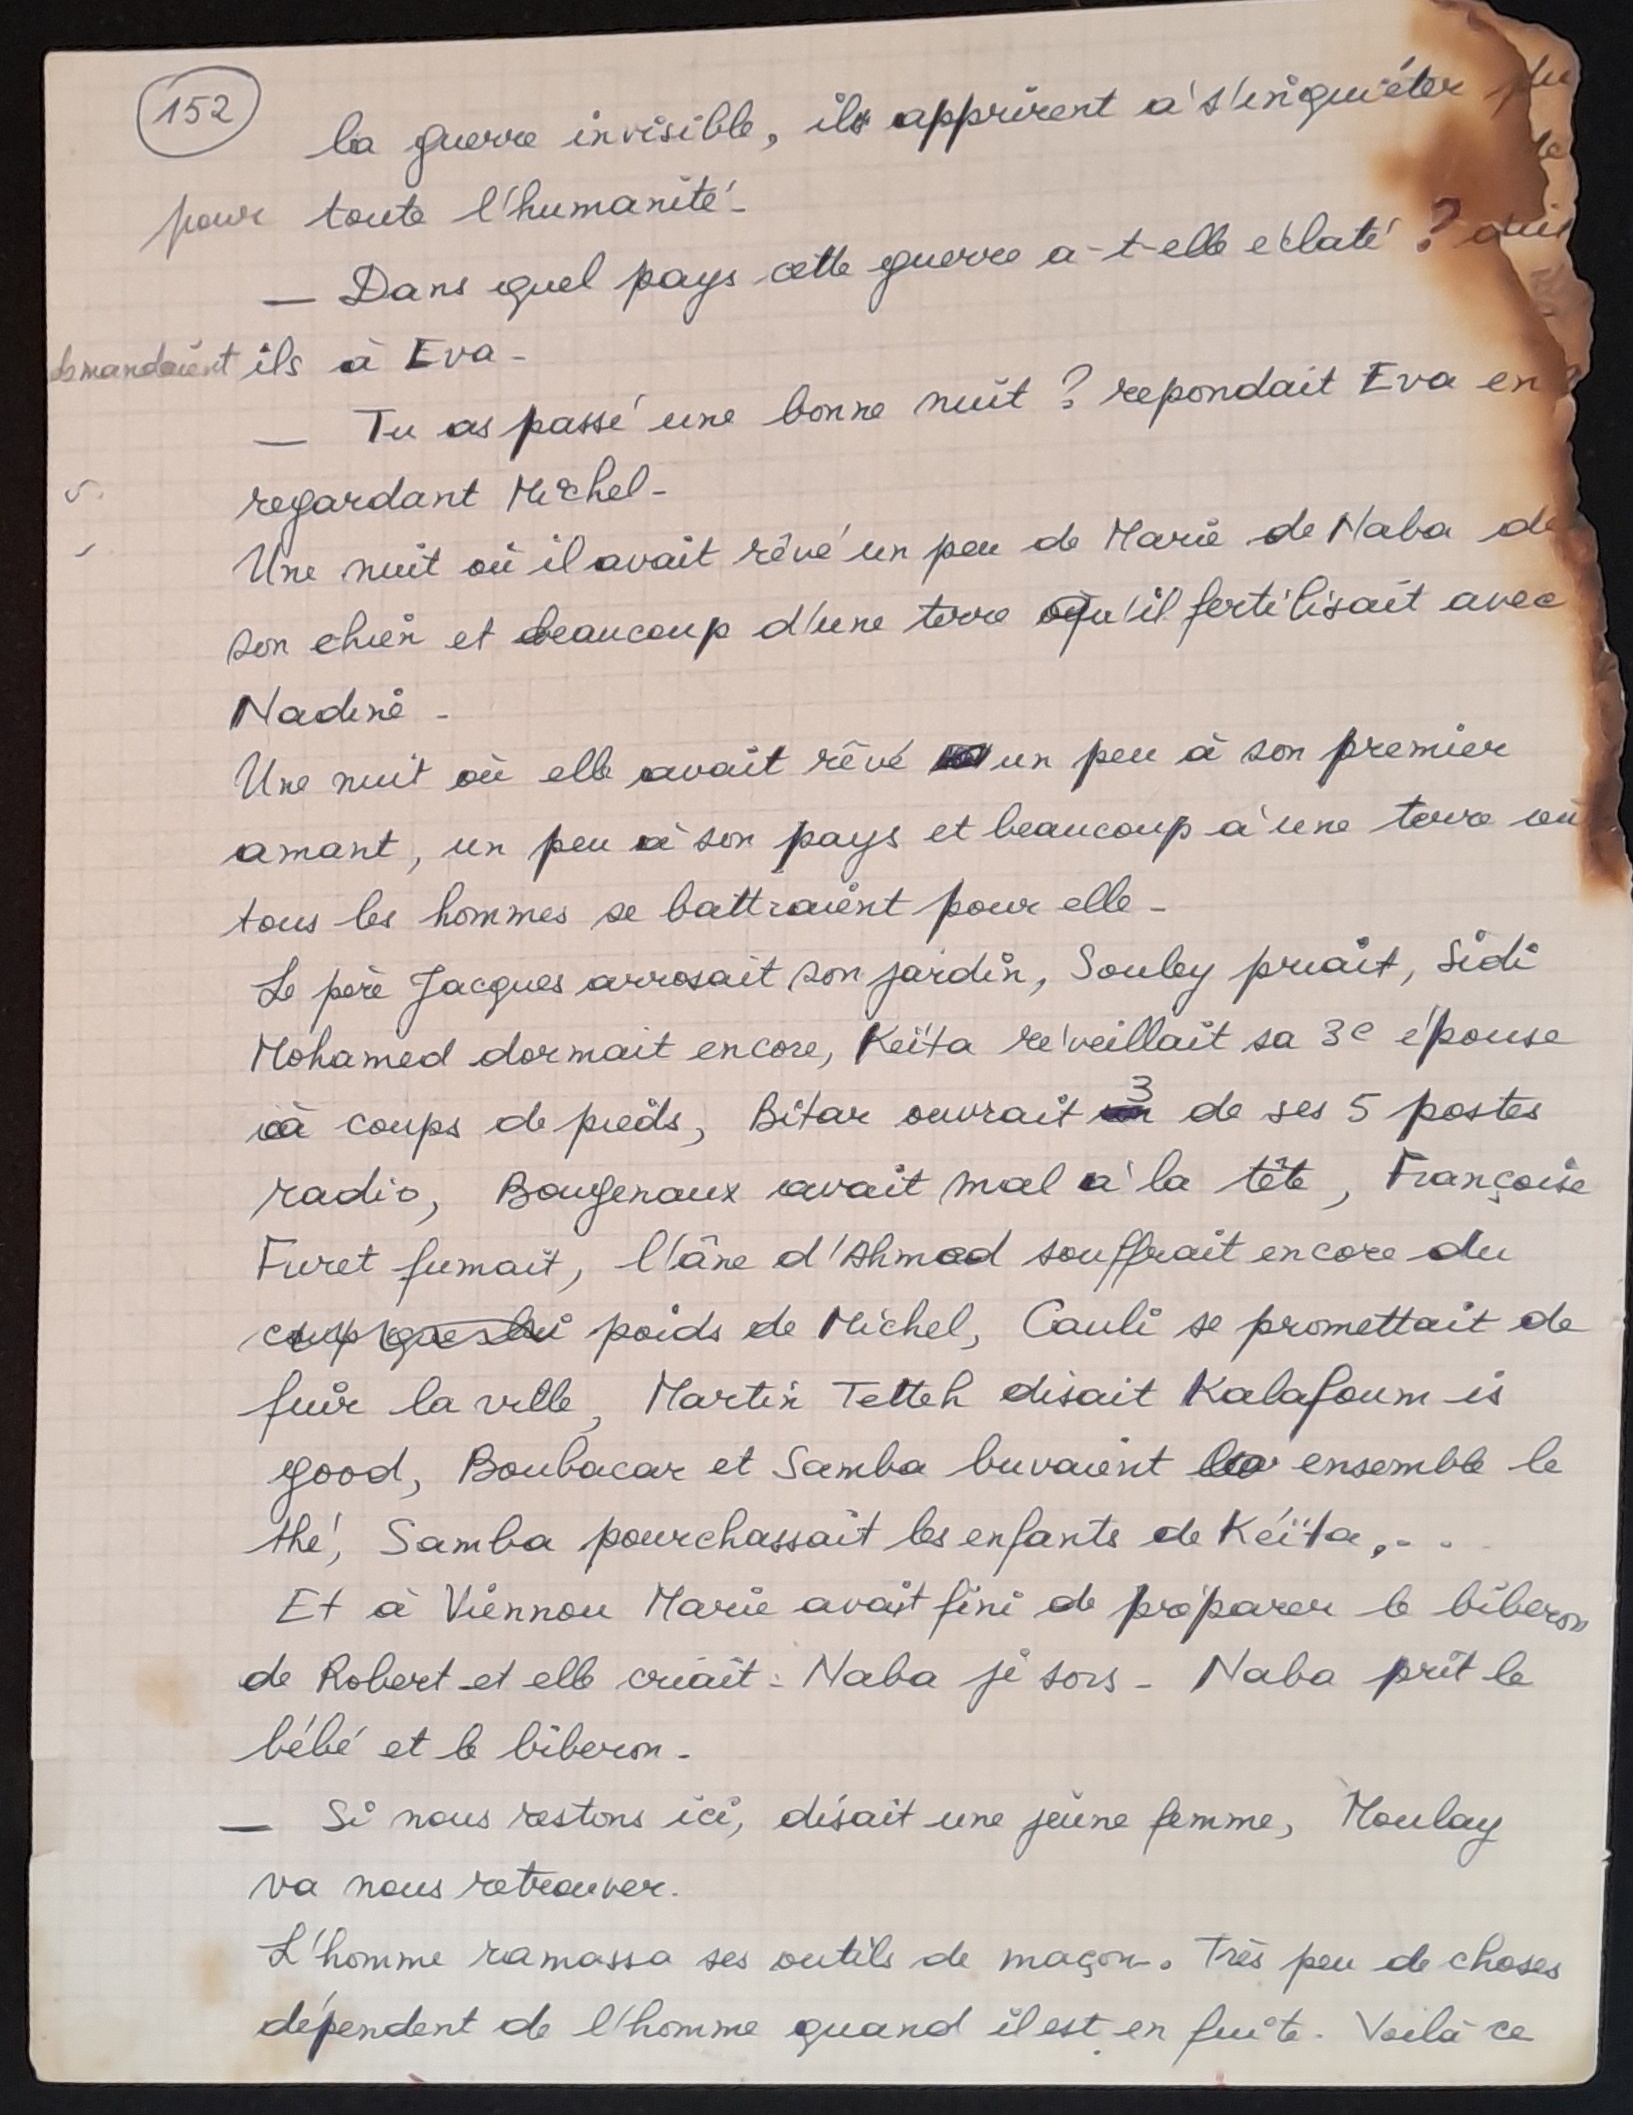 152
la guerre invisible, ils apprirent à s'inquiéter
pour toute l'humanité.
— Dans quel pays cette guerre a-t-elle éclaté ?
demandaient ils à Eva.
— Tu as passé une bonne nuit ? repondait Eva en
regardant Michel.
Une nuit où il avait rêvé un peu de Marie de Naba de
son chien et beaucoup d'une terre qu'il fertilisait avec
Nadine.
Une nuit où elle avait rêvé un peu à son premier
amant, un peu à son pays et beaucoup à une terre où
tous les hommes se battraient pour elle.
Le père Jacques arrosait son jardin, Souley priait, Sidi
Mohamed dormait encore, Keïta réveillait sa 3e épouse
à coups de pieds, Bitar ouvrait 3 de ses 5 postes
radio, Bougenaux avait mal à la tête, Françoise
Furet fumait, l'âne d'Ahmed souffrait encore du
coup que lui poids de Michel, Cauli se promettait de
fuir la ville, Martin Tetteh disait Kalafoum is
good, Boubacar et Samba buvaient ensemble le
thé, Samba pourchassait les enfants de Keïta,..
Et à Viennou Marie avait fini de préparer le biberon
de Robert et elle criait : Naba je sors - Naba prit le
bébé et le biberon.
— Si nous restons ici, disait une jeune femme, Moulay
va nous retrouver.
L'homme ramassa ses outils de maçon. Très peu de choses
dépendent de l'homme quand il est en fuite. Voilà ce